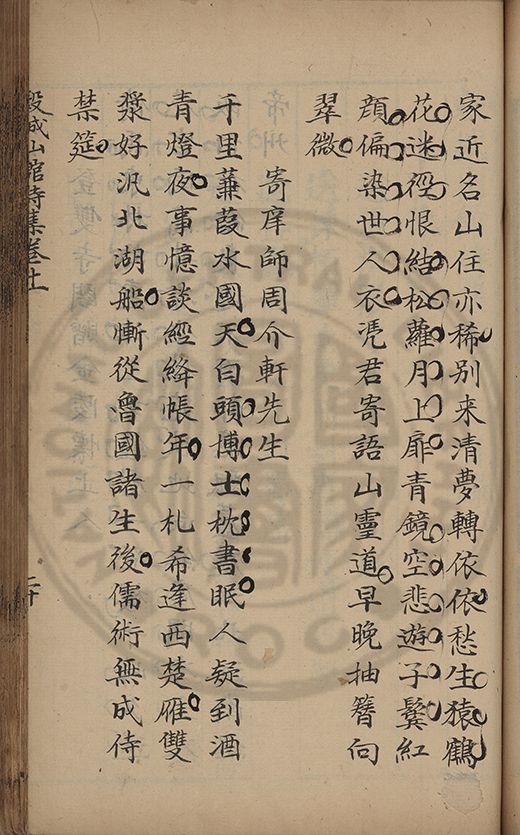 家近名山住亦稀别来清夢轉依依愁生猿鶴
花迷徑恨結松蘿月上扉青鏡空悲遊子鬂紅
顔偏染世人衣凴君寄語山靈道早晚抽簪向
翠微
寄庠師周介軒先生
千里蒹葭水國天白頭博士枕書眠人疑到酒
青燈夜事憶談經絳帳年一札希逢西楚雁雙
漿好汎北湖船慚從魯國諸生後儒術無成侍
禁筵
成山館詩集卷十
二十